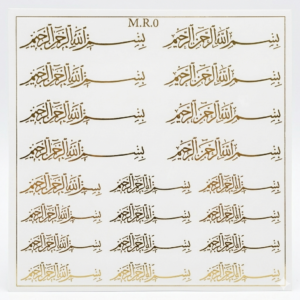 M.R.0
بسم الله الرحمن الرحيم بسم الله الرحمن الرحيم
بسم الله الرحمن الرحيم بسم الله الرحمن الرحيم
بسم الله الرحمن الرحيم بسم الله الرحمن الرحيم
بسم الله الرحمن الرحيم بسم الله الرحمن الرحيم
بسم الله الرحمن الرحيم بسم الله الرحمن الرحيم بسم الله الرحمن الرحيم
بسم الله الرحمن الرحيم بسم الله الرحمن الرحيم بسم الله الرحمن الرحيم
بسم الله الرحمن الرحيم بسم الله الرحمن الرحيم بسم الله الرحمن الرحيم
بسم الله الرحمن الرحيم بسم الله الرحمن الرحيم بسم الله الرحمن الرحيم